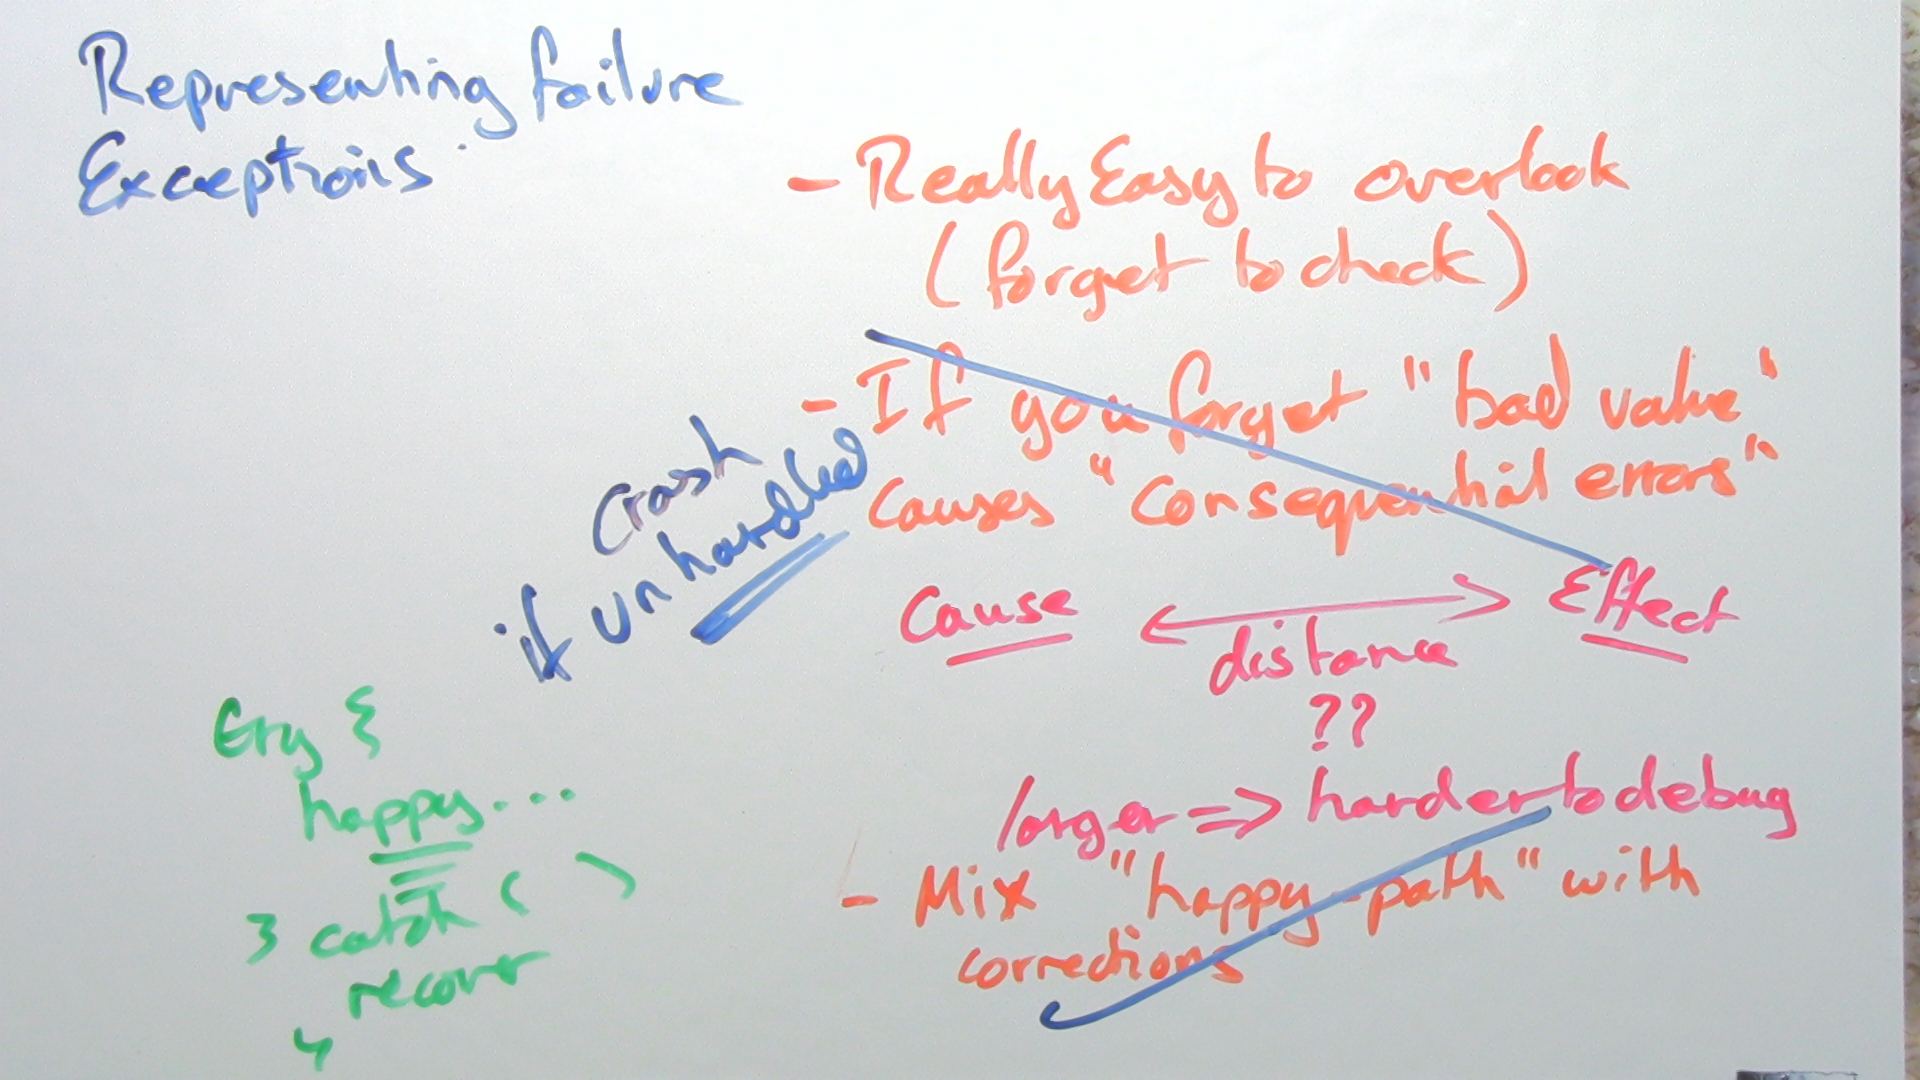 Representing failure
Exceptions.
- Really Easy to overlook
(forget to check)
- If you forget "bad value"
causes "consequential errors"
Cause <-> Effect
distance
??
larger => harder to debug
- Mix "happy-path" with
corrections
crash
if unhandled
try {
happy...
} catch ( )
recover
}